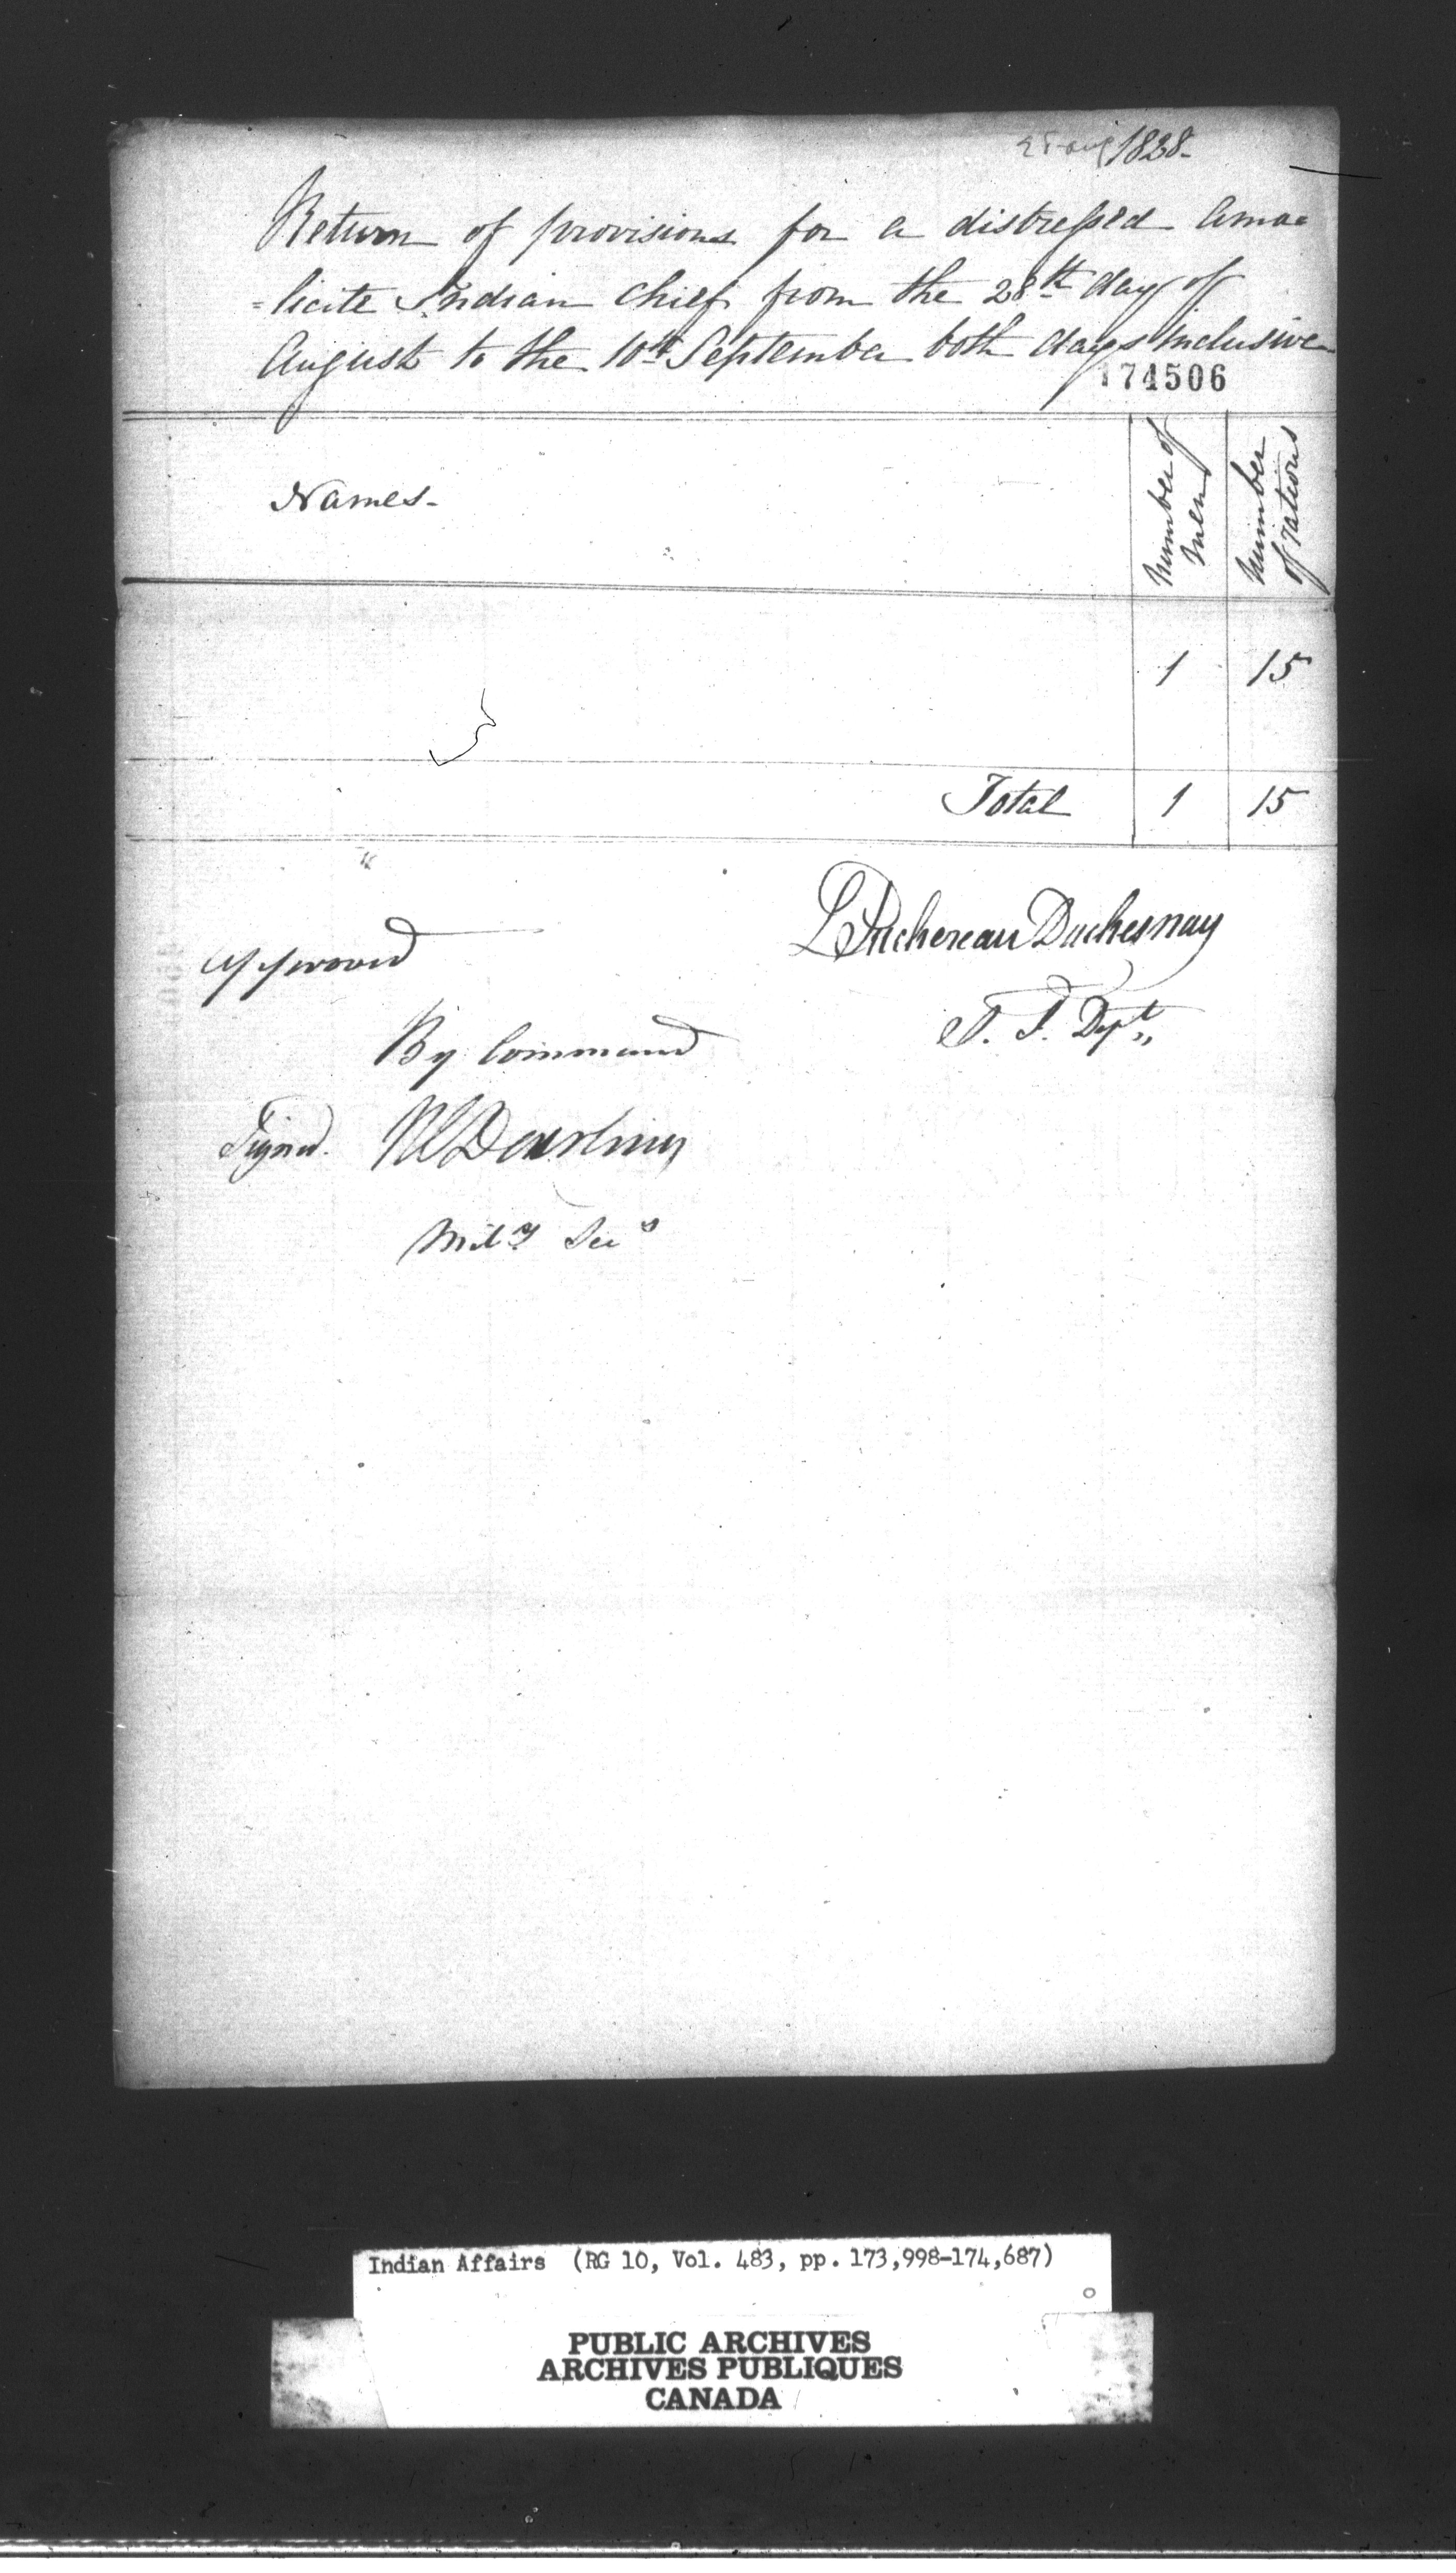 28 aug 1828-
Return of provisions for a distressed Ama=
=licite Indian Chief from the 28th day of
August to the 10th September both days inclusive
174506
Names-
Number of
Men
Number
of rations
1 15
Total 1 15
L Juchereau Duchesnay
Approved
By Command
Signed.
Darling
Mily Secy
Indian Affairs (RG 10, Vol. 483, pp. 173,998-174,687)
PUBLIC ARCHIVES
ARCHIVES PUBLIQUES
CANADA